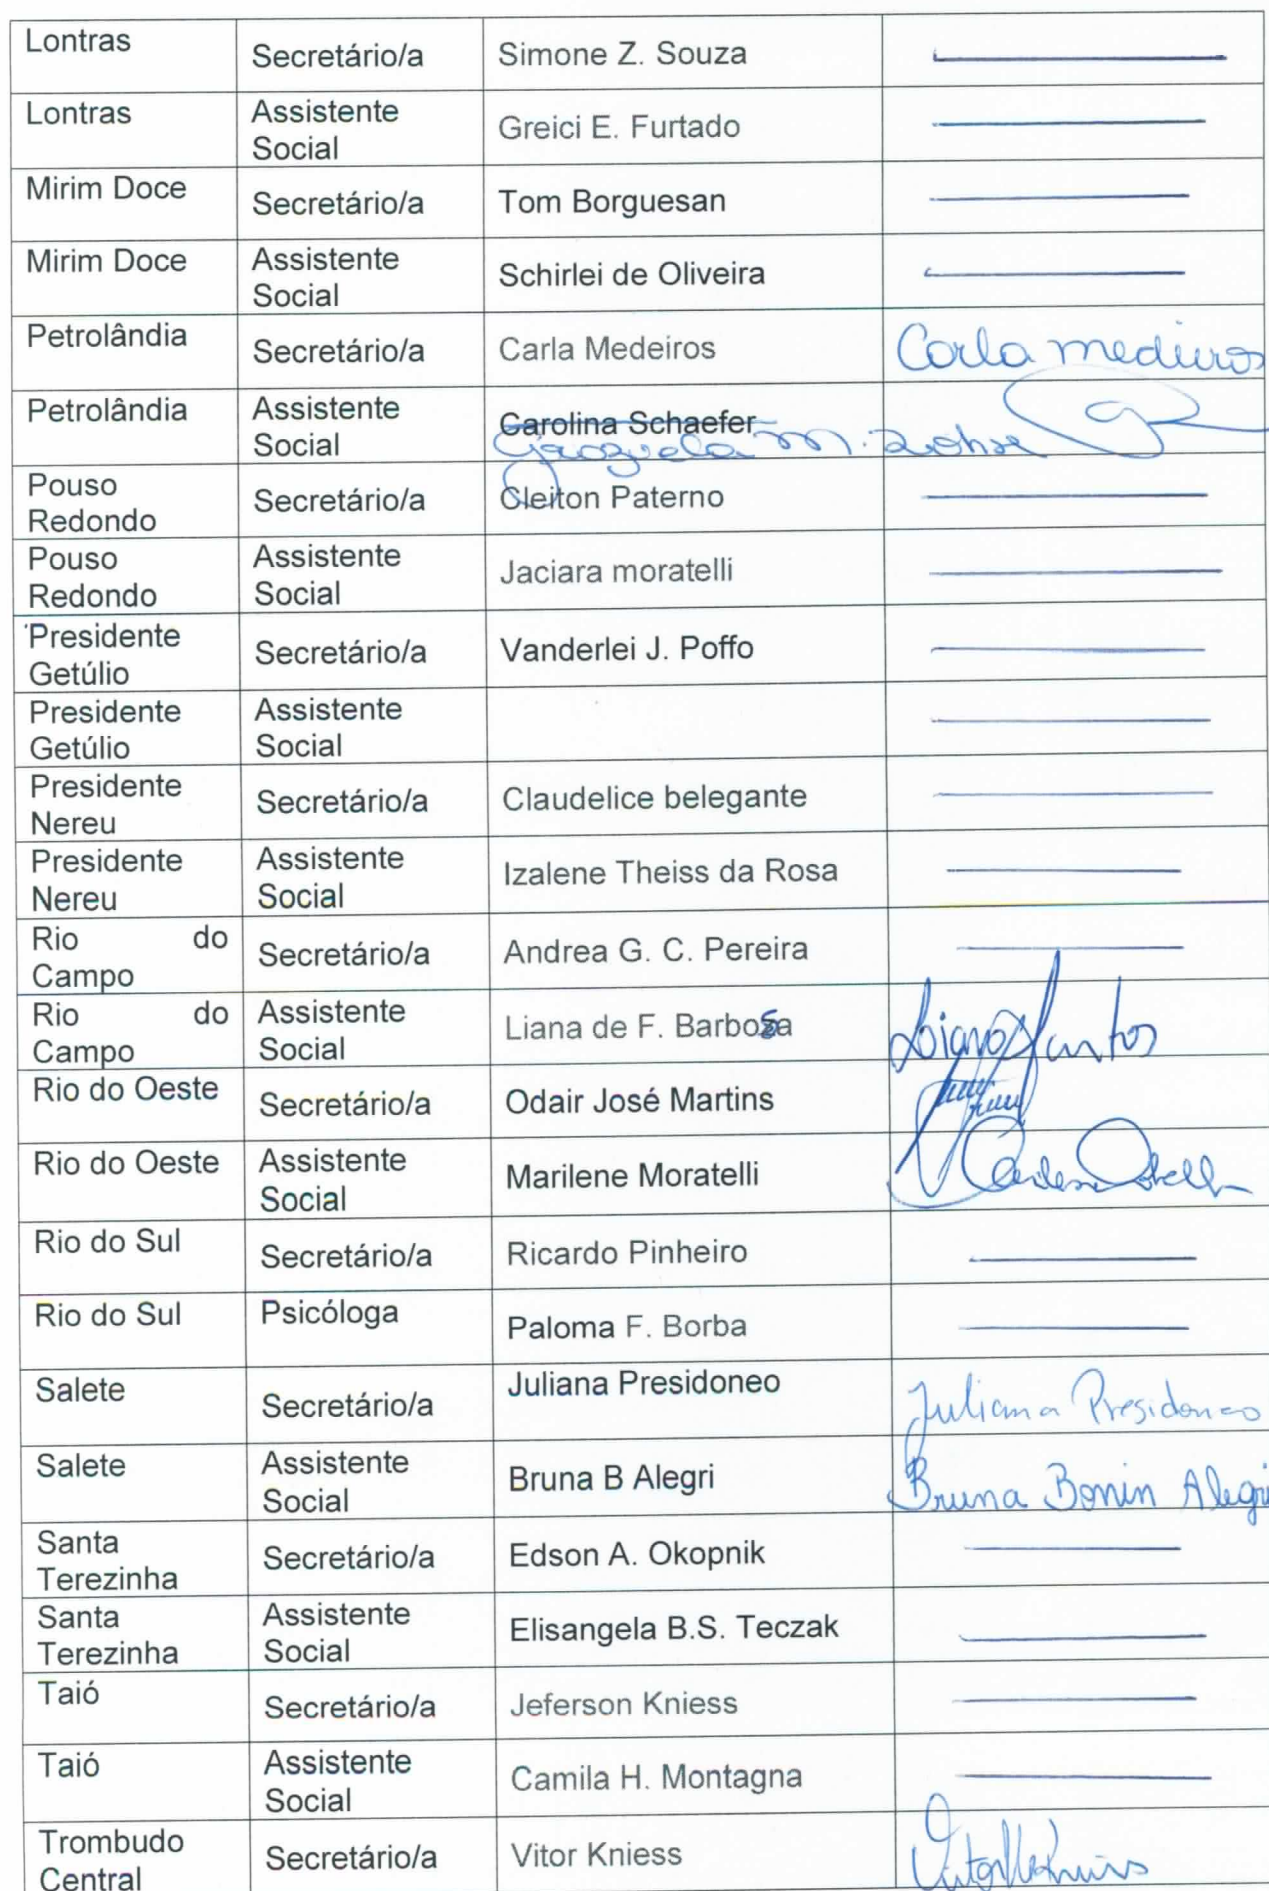 Lontras Secretário/a Simone Z. Souza
Lontras Assistente Social Greici E. Furtado
Mirim Doce Secretário/a Tom Borguesan
Mirim Doce Assistente Social Schirlei de Oliveira
Petrolândia Secretário/a Carla Medeiros Carla medeiros
Petrolândia Assistente Social Carolina Schaefer
M.
Pouso Redondo Secretário/a Cleiton Paterno
Pouso Redondo Assistente Social Jaciara moratelli
Presidente Getúlio Secretário/a Vanderlei J. Poffo
Presidente Getúlio Assistente Social
Presidente Nereu Secretário/a Claudelice belegante
Presidente Nereu Assistente Social Izalene Theiss da Rosa
Rio do Campo Secretário/a Andrea G. C. Pereira
Rio do Campo Assistente Social Liana de F. Barbosa Santos
Rio do Oeste Secretário/a Odair José Martins
Rio do Oeste Assistente Social Marilene Moratelli
Rio do Sul Secretário/a Ricardo Pinheiro
Rio do Sul Psicóloga Paloma F. Borba
Salete Secretário/a Juliana Presidoneo Juliana Presidoneo
Salete Assistente Social Bruna B Alegri Bruna Bonin Alegri
Santa Terezinha Secretário/a Edson A. Okopnik
Santa Terezinha Assistente Social Elisangela B.S. Teczak
Taió Secretário/a Jeferson Kniess
Taió Assistente Social Camila H. Montagna
Trombudo Central Secretário/a Vitor Kniess